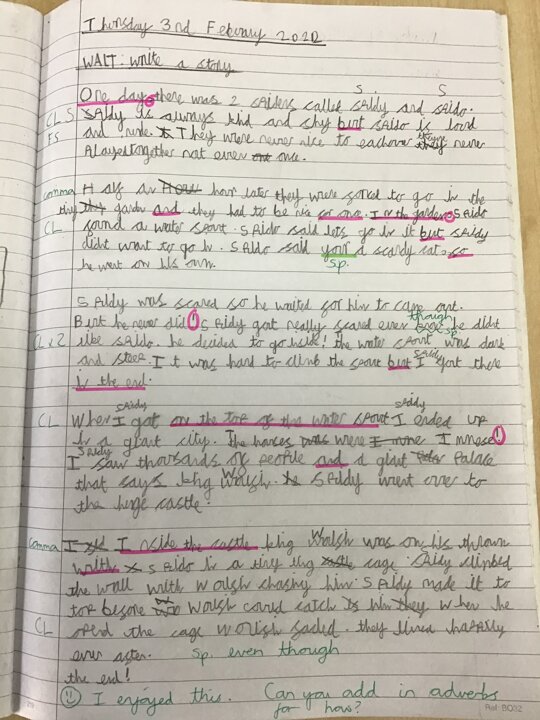 Thursday 3rd Febuary 2022
WALT: write a story
S. S
One day there was 2 sAiders called sAldy and sAldo.
CL S sAldy is always kind and shy but sAldo is loud
FS and rude. They were never nice to eachover they never
Alayed together not even once.
comma Half an hour later they were forced to go in the
tiny garden and they had to be nice for once. In the garden sAldo
CL found a water spout. sAldo said lets go in it but sAldy
didnt want to go in. sAldo said your a scardy cat so
he went on his own. sp.
sAldy was scared so he waited for him to came out.
But he never did! sAldy got really scared even though he didnt
sp.
CL x 2 like sAldo. he decided to go inside! the water spout was dark
and steep. It was hard to climb the spout but sAldy got there
in the end.
sAldy sAldy
CL When I got on the top of the water spout I ended up
in a giant city. The houses were
sAldy I saw thousands of people and a giant Palace
that says king Wolish. sAldy went over to
the huge castle.
comma Inside the castle king Wolish was on his thrown
with sAldo in a tiny cage. sAldy climbed
the wall with Wolish chasing him. sAldy made it to
top before Wolish could catch him they when he
CL opend the cage Wolish faded. they lived happily
ever after. sp. even though
the end!
I enjoyed this. Can you add in adverbs
for how?
Ref: BQ32